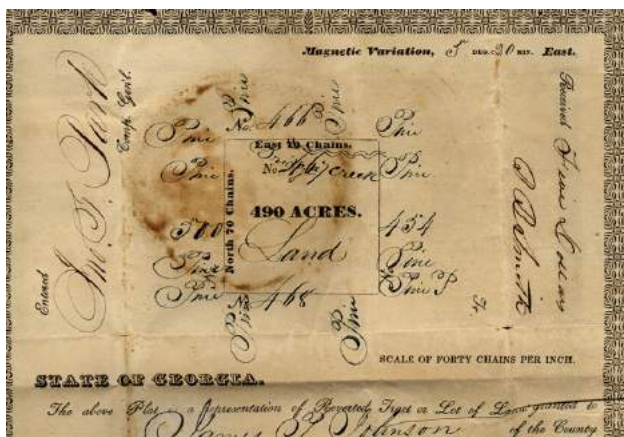 Magnetic Variation, 5 DEG. 20 MIN. East.
Entered
Jno. G. Park
Comp. Genl.
Received Five Dollars
Smith
Tr.
Pine No. 466 Pine Pine
East 70 Chains.
Pine No. 467 Creek Pine
North 70 Chains.
490 ACRES.
500 Land 454
Pine Pine
Pine Pine P
Pine No. 468 Pine
SCALE OF FORTY CHAINS PER INCH.
STATE OF GEORGIA.
The above Plat is a Representation of Reverted Tract or Lot of Land granted to
James Johnson of the County